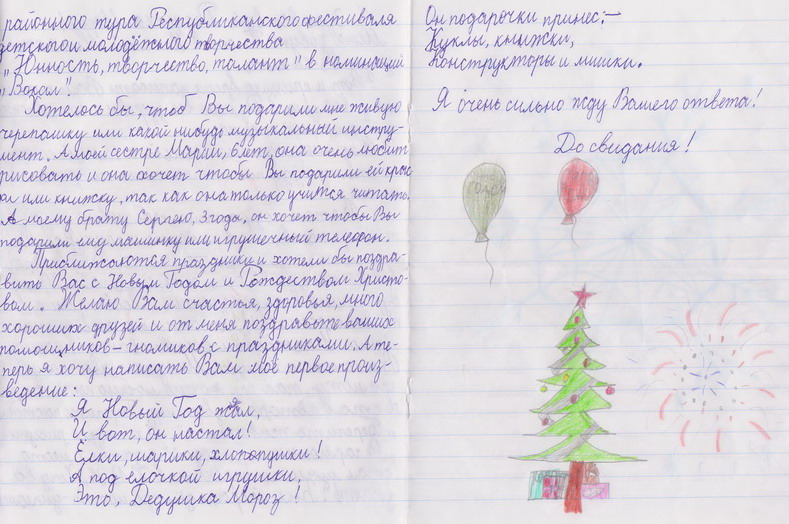 районного тура Республиканского фестиваля
детского и молодёжного творчества
„Юность, творчество, талант" в номинаций
„Вокал".
Хотелось бы, чтоб Вы подарили мне живую
черепашку или какой нибудь музыкальный инстру-
мент. А моей сестре Марии, 6 лет, она очень любит
рисовать и она хочет чтобы Вы подарили ей крас
ки или книжку, так как она только учится читать.
А моему брату Сергею, 3 года, он хочет чтобы Вы
подарили ему машинку или игрушечный телефон.
Приближаются праздники и хотели бы поздра-
вить Вас с Новым Годом и Рождеством Христо-
вым. Желаю Вам счастья, здоровья, много
хороших друзей и от меня поздравьте ваших
помощников - гномиков с праздниками. А те-
перь я хочу написать Вам моё первое произ-
ведение:
Я Новый Год ждал,
И вот, он настал!
Ёлки, шарики, хлопопушки!
А под ёлочкой игрушки,
Это, Дедушка Мороз!
Он подарочки принес:-
Куклы, книжки,
Конструкторы и мишки.
Я очень сильно жду Вашего ответа!
До свидания!